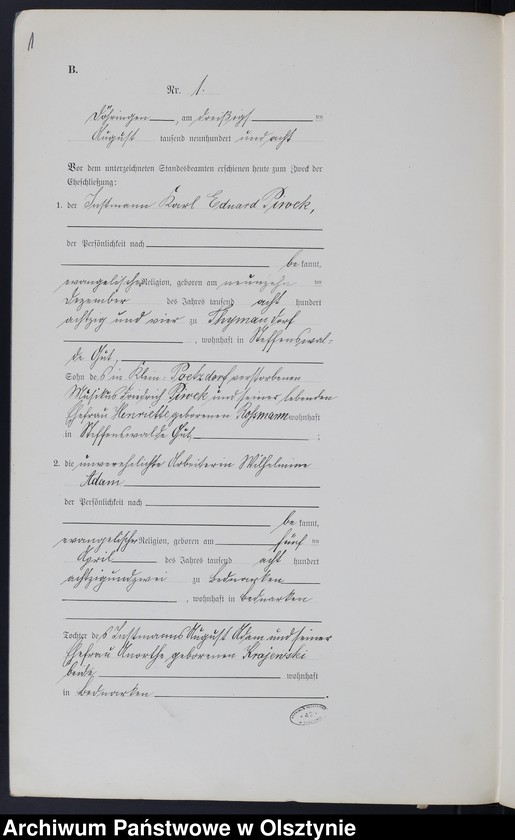 1
B.
Nr. 1.
Döhringen, am dreißigsten
August tausend neunhundert und acht
Vor dem unterzeichneten Standesbeamten erschienen heute zum Zweck der
Eheschließung:
1. der Instmann Karl Eduard Piwek,
der Persönlichkeit nach
be kannt,
evangelischer Religion, geboren am neunzehn ten
Dezember des Jahres tausend acht hundert
achtzig und vier zu Thymau dorf
, wohnhaft in Steffenswal-
de Gut,
Sohn des in Klein-Poetzdorf verstorbenen
Musikus Friedrich Piwek und seiner lebenden
Ehefrau Henriette geborenen Roßmann wohnhaft
in Steffenswalde Gut ;
2. die unverehelichte Arbeiterin Wilhelmine
Adam
der Persönlichkeit nach
be kannt,
evangelischer Religion, geboren am fünf ten
April des Jahres tausend acht hundert
achtzigundzwei zu Bednarken
, wohnhaft in Bednarken
Tochter des Instmanns August Adam und seiner
Ehefrau geborenen Krajewski
beide wohnhaft
in Bednarken .
Archiwum Państwowe w Olsztynie